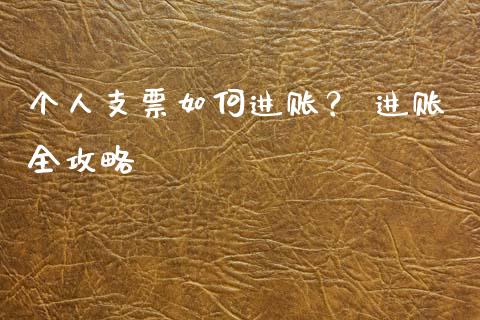 个人支票如何进账？ 进账
全攻略